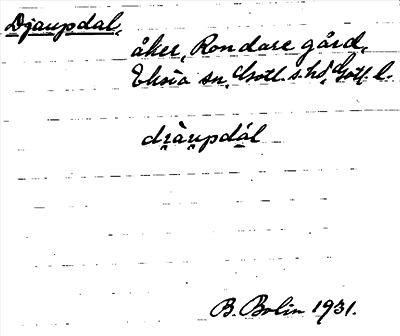 Djaupdal,
åker, Rondare gård,
Eksta sn, Gotl. s. hd, Gotl. l.
di̯àu̯pdál
B. Bolin 1931.